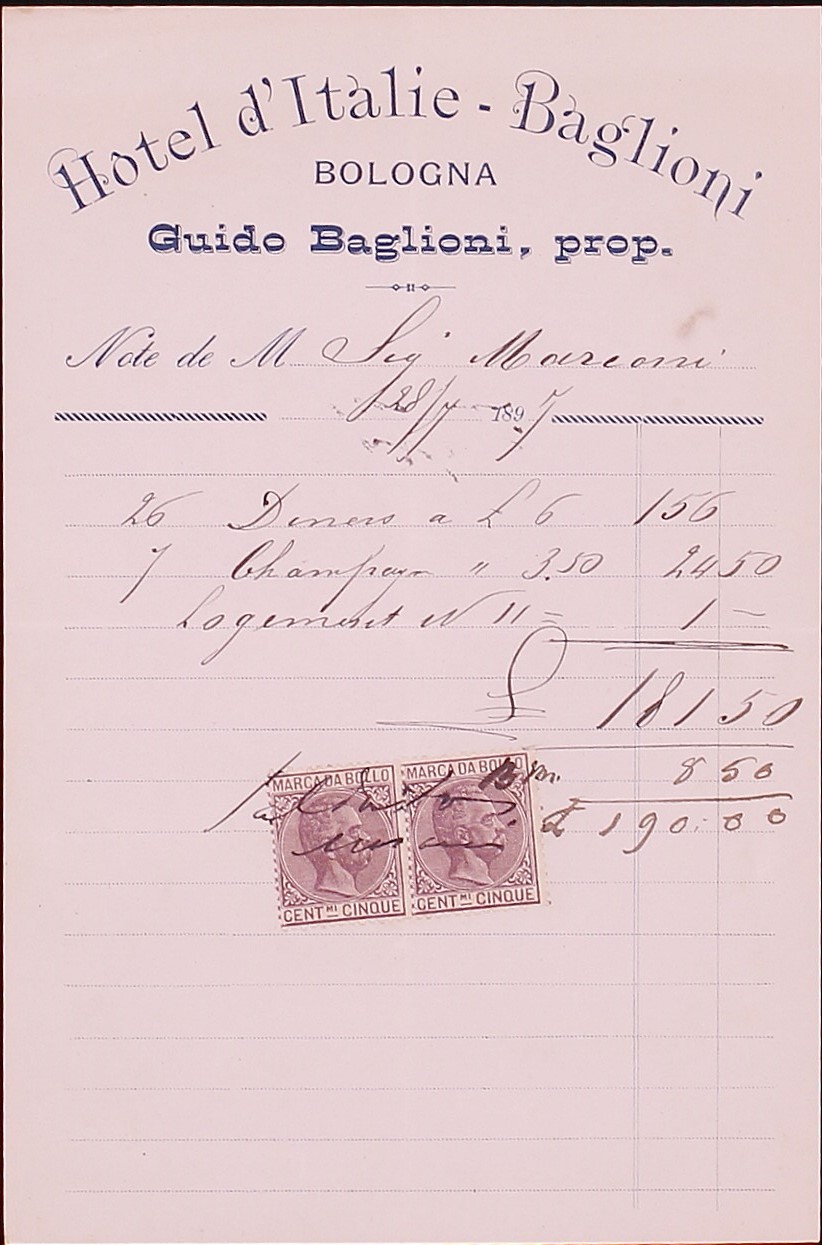 Hotel d'Italie - Baglioni
BOLOGNA
Guido Baglioni, prop.
Note de M Sigr Marconi
28/7 1897
26 Diners a £ 6 156
7 Champagn " 3.50 24 50
Logement N 11 = 1 —
£ 181 50
B. m. 8 50
£ 190.00
MARCA DA BOLLO MARCA DA BOLLO
CENT.MI CINQUE CENT.MI CINQUE